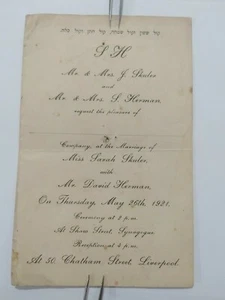 קול ששון וקול שמחה, קול חתן וקול כלה.
S H
Mr. & Mrs. J. Shuler
and
Mr. & Mrs. S. Herman,
request the pleasure of
Company at the Marriage of
Miss Sarah Shuler,
with
Mr. David Herman,
On Thursday, May 26th, 1921.
Ceremony at 2 p.m.
At Shaw Street Synagogue
Reception at 4 p.m.
At 50, Chatham Street, Liverpool.